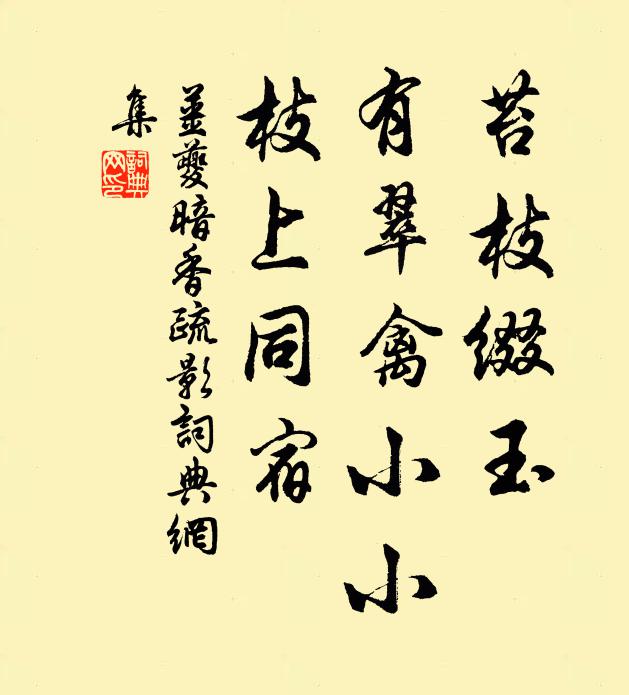 苔枝綴玉
有翠禽小小
枝上同宿
姜夔暗香疏影詞典網
集
詞典
网印